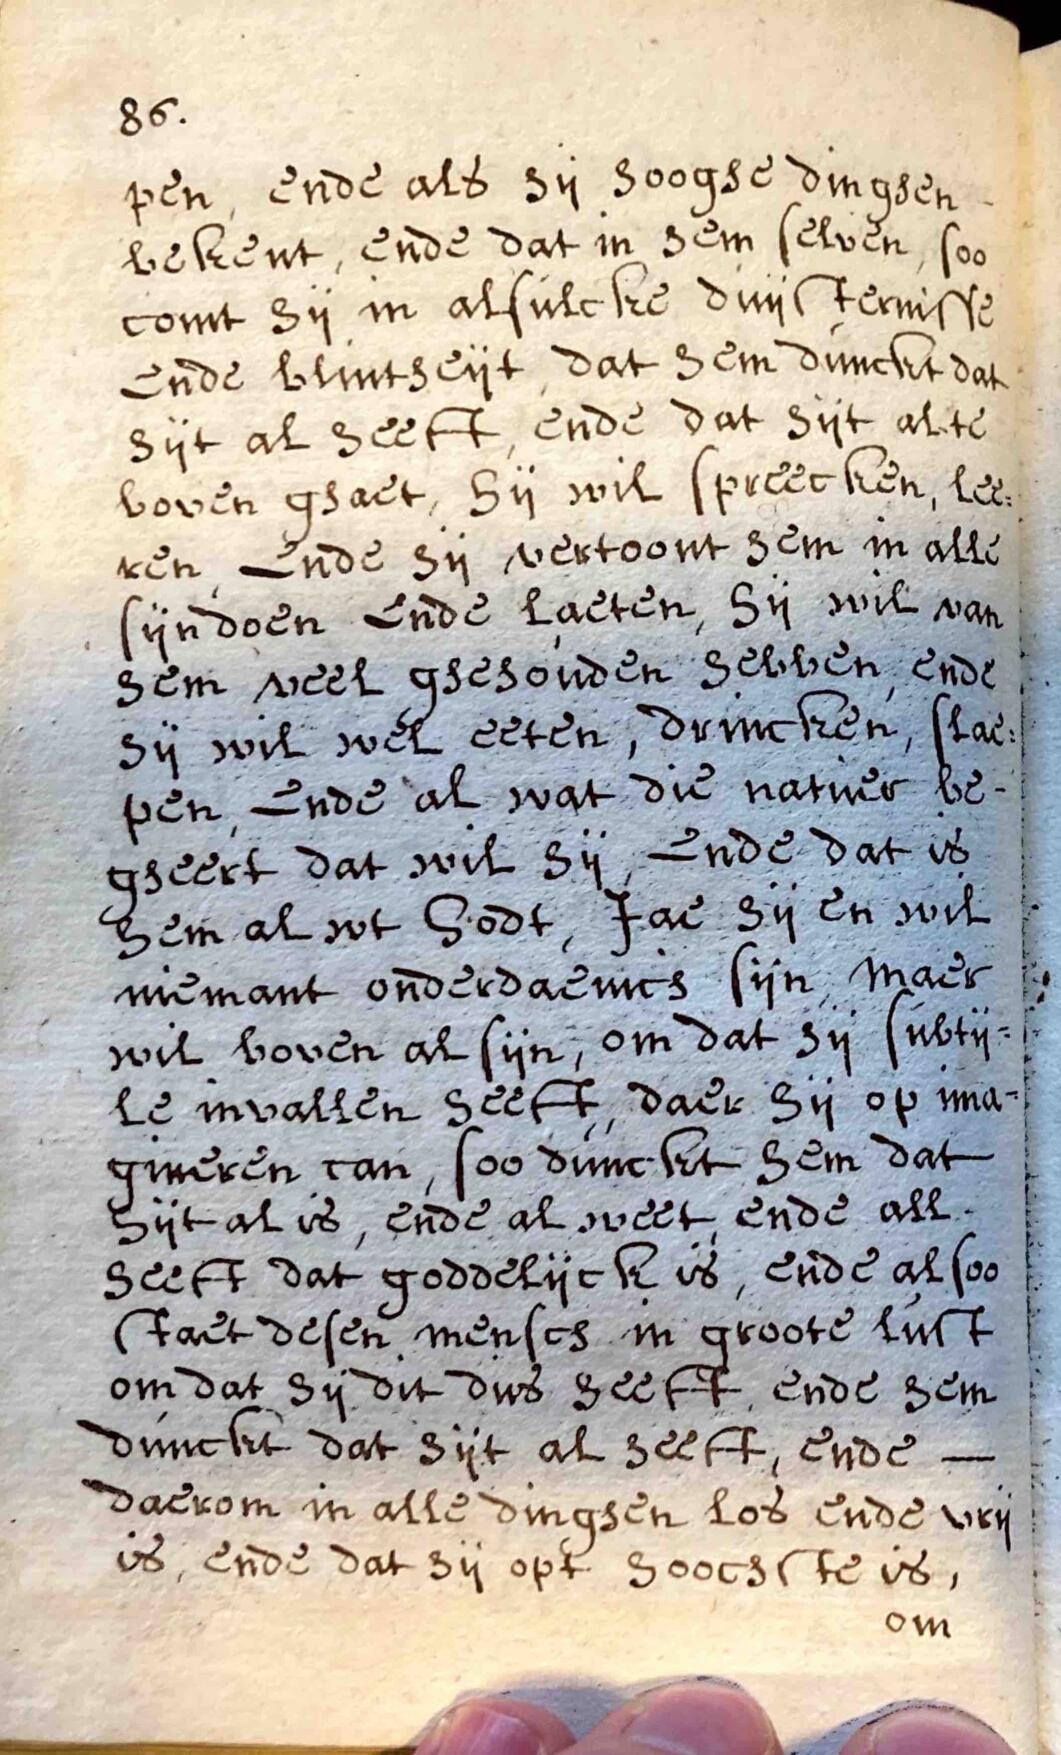 86.
pen, ende als hij hooghe dinghen
bekent, ende dat in hem selven, soo
comt hij in alsulcke duijsternisse
Ende blintheijt, dat hem dunckt dat
hijt al heeft, ende dat hijt al te
boven ghaet, hij wil spreecken, lee:
ren, Ende hij vertoont hem in alle
sijn doen Ende Laeten, hij wil van
hem veel ghehouden hebben, ende
hij wil wel eeten, drincken, slae:
pen, Ende al wat die natuer be-
gheert dat wil hij, Ende dat is
hem al wt Godt, Jae hij en wil
niemant onderdaenich sijn, maer
wil boven al sijn, om dat hij subtij=
le invallen heeft, daer hij op ima=
gineren can, soo dunckt hem dat
hijt al is, ende al weet, ende all
heeft dat goddelijck is, ende alsoo
staet desen mensch in groote lust
om dat hij dit dus heeft, ende hem
dunckt dat hijt al heeft, ende —
daerom in alle dinghen los ende vrij
is, ende dat hij opt hoochste is,
om